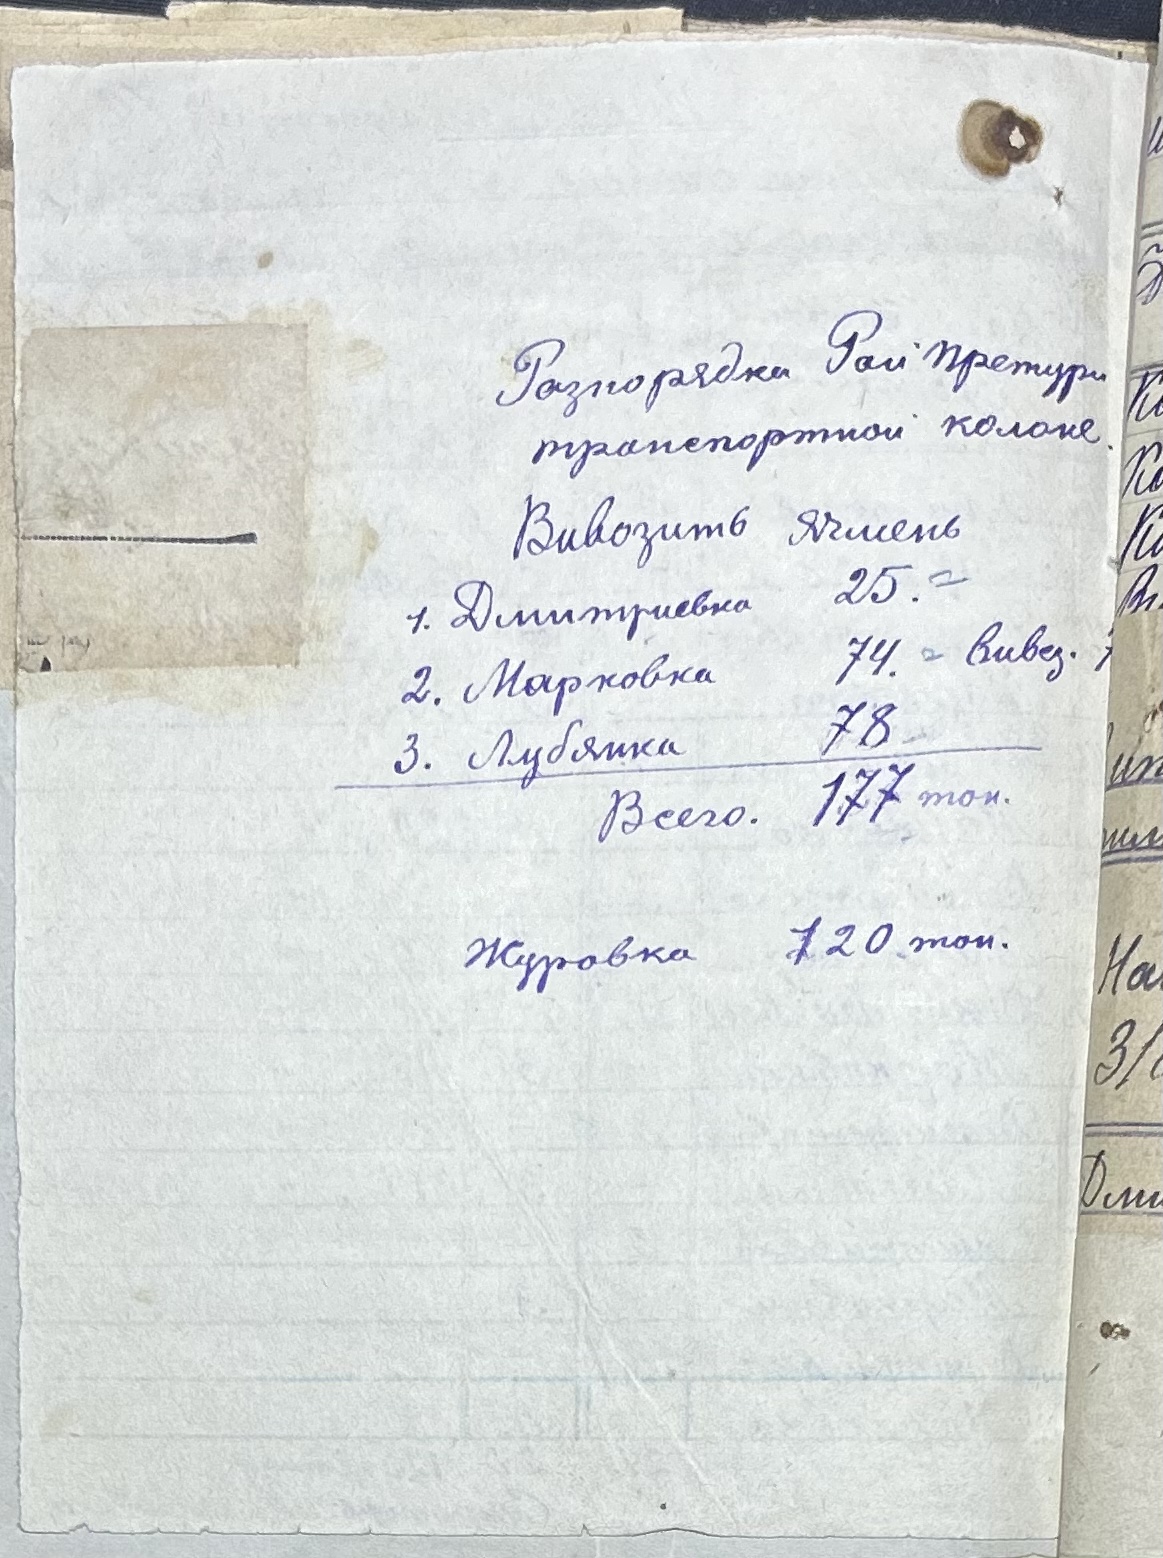 Разпорядка Рай претури
транспортной колоне.
Вивозить ячмень
1. Дмитриевка 25.=
2. Марковка 74.= Вивез. 7
3. Лубянка 78
Всего. 177 тон.
Журовка 120 тон.
На
3/
Дми